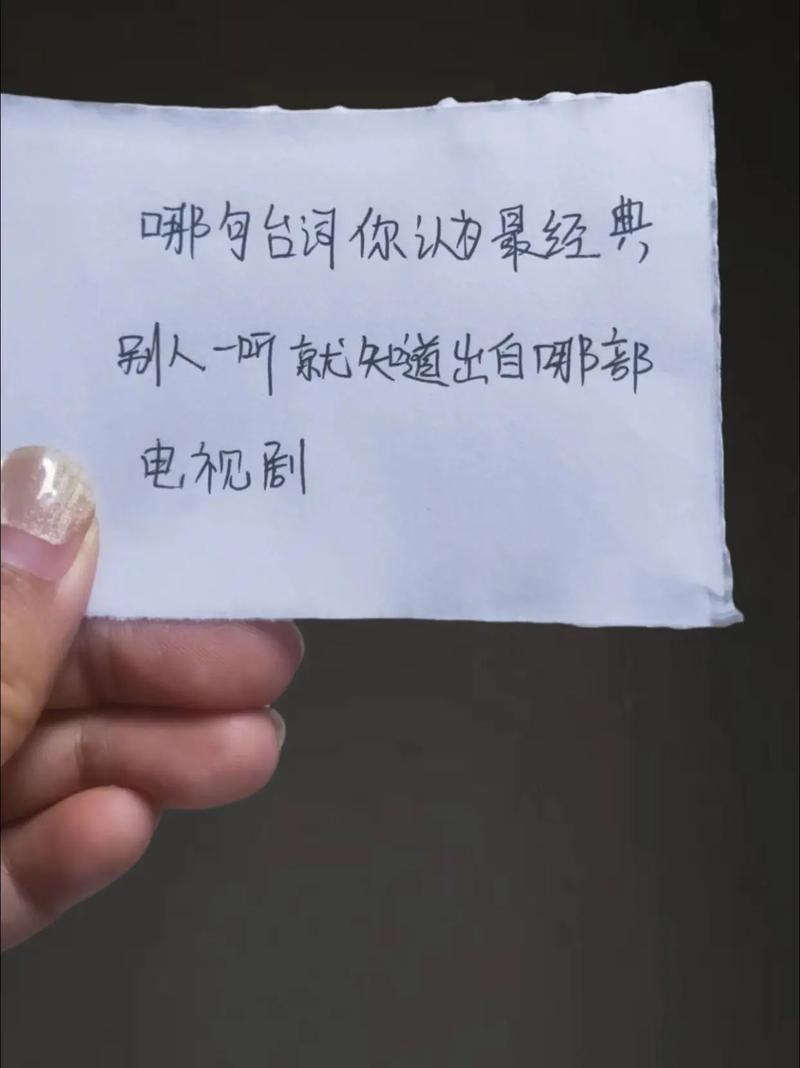 哪句台词你认为最经典,
别人一听就知道出自哪部
电视剧